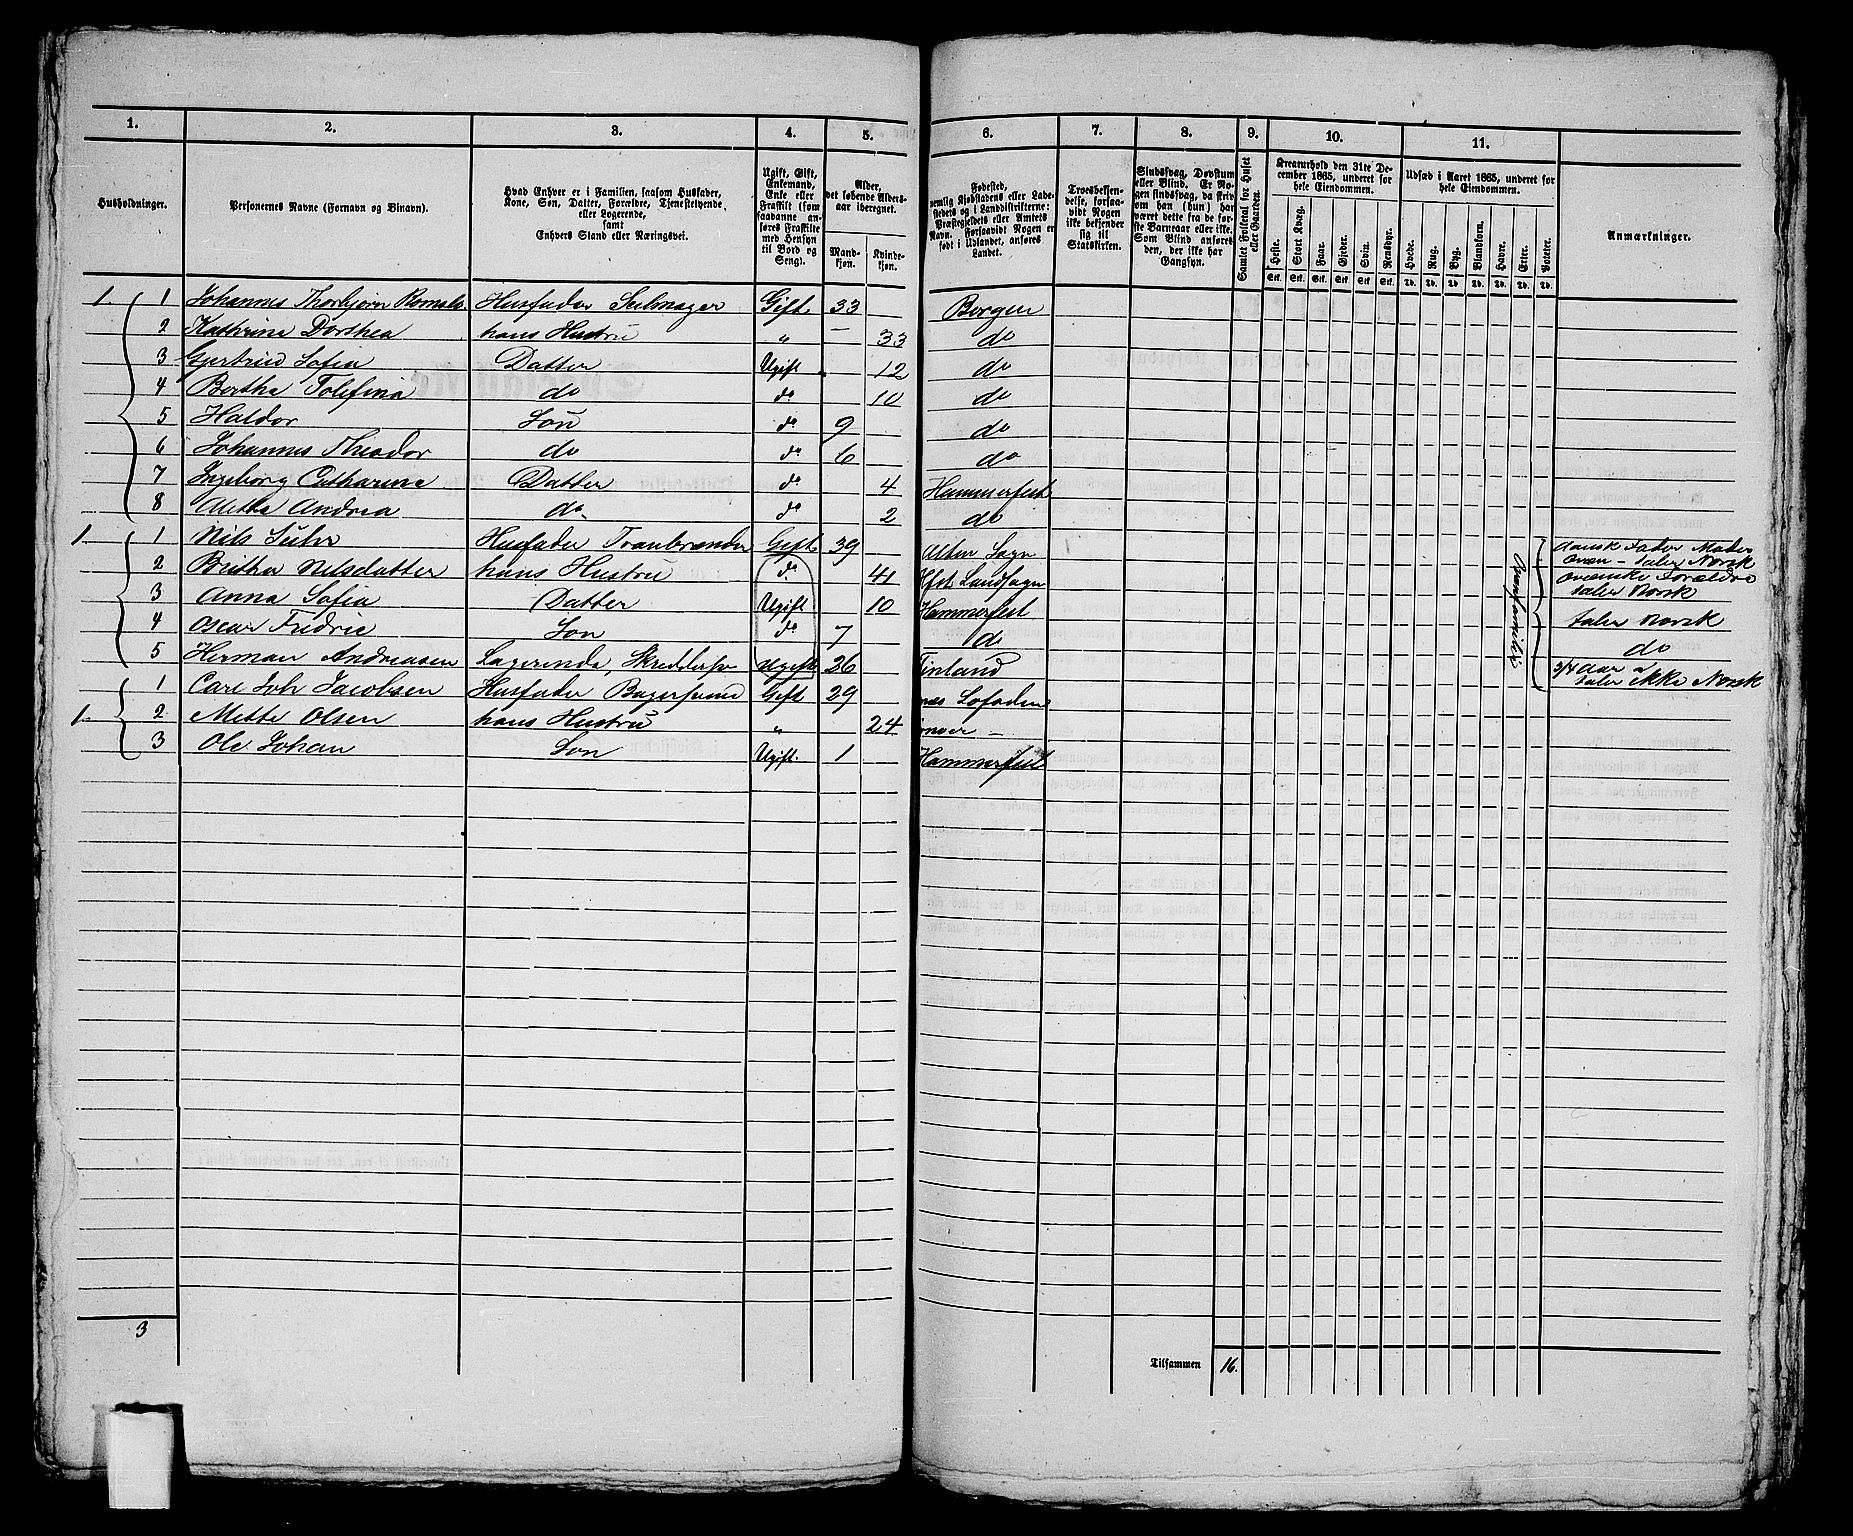 1. 2. 3. 4. 5. 6. 7. 8. 9. 10. 11.
Husholdninger.
Personernes Navne (Fornavn og Binavn).
Hvad Enhver er i Familien, saasom Husfader,
Kone, Søn, Datter, Forældre, Tjenestetyende,
eller Logerende,
samt
Enhvers Stand eller Næringsvei.
Ugift, Gift,
Enkemand,
Enke eller
Fraskilt (som
saadanne an-
føres Fraskilte
med Hensyn
til Bord og
Seng).
Alder,
det løbende Alders-
aar iberegnet.
Mand-
kjøn.
Kvinde-
kjøn.
Fødested,
nemlig Kjøbstadens eller Lade-
stedets og i Landdistrikterne:
Præstegjeldets eller Amtets
Navn. Forsaavidt Nogen er
født i Udlandet, anføres
Landet.
Troesbekjen-
delse, forsaa-
vidt Nogen
ikke bekjender
sig til
Statskirken.
Sindssvag, Døvstum
eller Blind. Er No-
gen sindssvag, da skriv
om han (hun) har
været dette fra de før-
ste Barneaar eller ikke.
Som Blind anføres
den, der ikke har
Gangsyn.
Samlet Folketal for Huset
eller Gaarden.
Kreaturhold den 31te De-
cember 1865, underet for
hele Eiendommen.
Heste. Stort Kvæg. Faar. Gjeder. Svin. Rensdyr.
Stk. Stk. Stk. Stk. Stk. Stk.
Udsæd i Aaret 1865, underet for
hele Eiendommen.
Hvede. Rug. Byg. Blandkorn. Havre. Erter. Poteter.
Td. Td. Td. Td. Td. Td. Td.
Anmærkninger.
1. 1 Johannes Thorbjørn Husfader Gift 33 Bergen
2 Kathrine Dorthea hans Hustru " — 33 do
3 Gjertrud Sofia Datter Ugift 12 do
4 Bertha Tolefina do do 10 do
5 Haldor Søn do 9 do
6 Johannes Theodor do do 6 do
7 Ingeborg Catharina Datter do 4 Hammerfest
8 Mette Andrea do do 2 do
1. 1 Nils Suhr Husfader Tranbrænder Gift 39 Alten Sogn dansk Fader Moder
Qvæn – taler Norsk
2 Britha Nilsdatter hans Hustru do 41 Hfst Landsogn qvænske Forældre
taler Norsk
3 Anna Sofia Datter Ugift 10 Hammerfest
4 Oscar Fredric Søn do 7 d taler Norsk
do
5 Herman Andreasen Logerende, Ugift 26 Finland 3/4 Aar
taler ikke Norsk
1 Carl Joh Jacobsen Husfader Bagersvend Gift 29 Lofoden
1. 2 Mette Olsen hans Hustru " 24
3 Ole Johan Søn Ugift. 1 Hammerfest
3
Tilsammen 16.